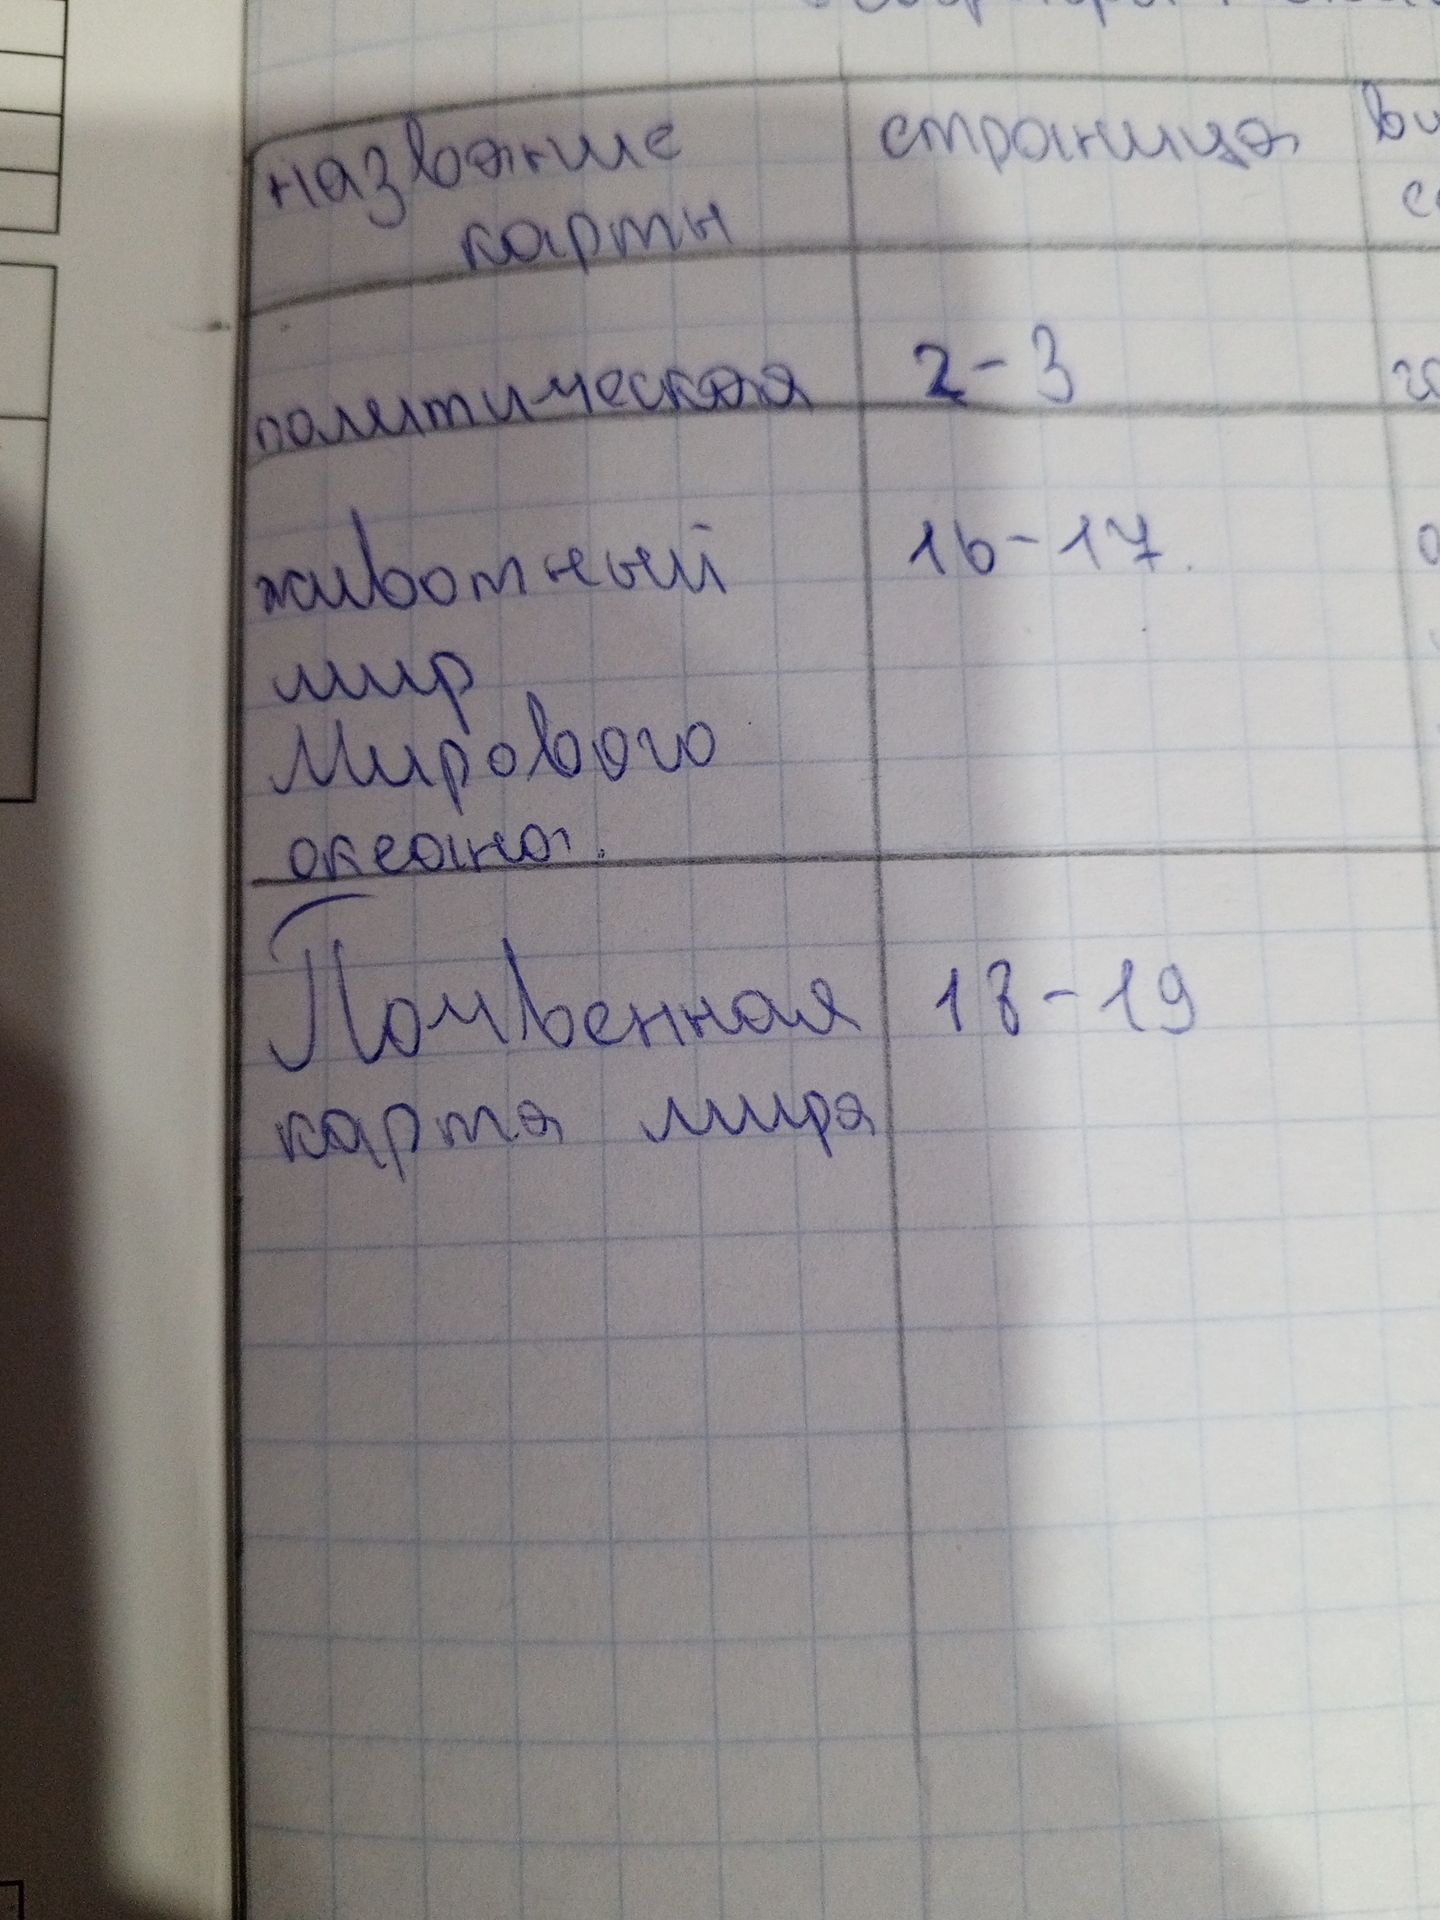 название страница
карты
политическая 2-3
животный 16-17.
мир
Мирового
океана.
Почвенная 18-19
карта мира